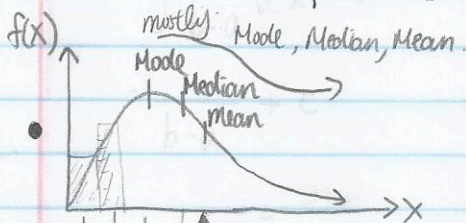 mostly: Mode, Median, Mean.
f(x)
Mode
Median
Mean
x